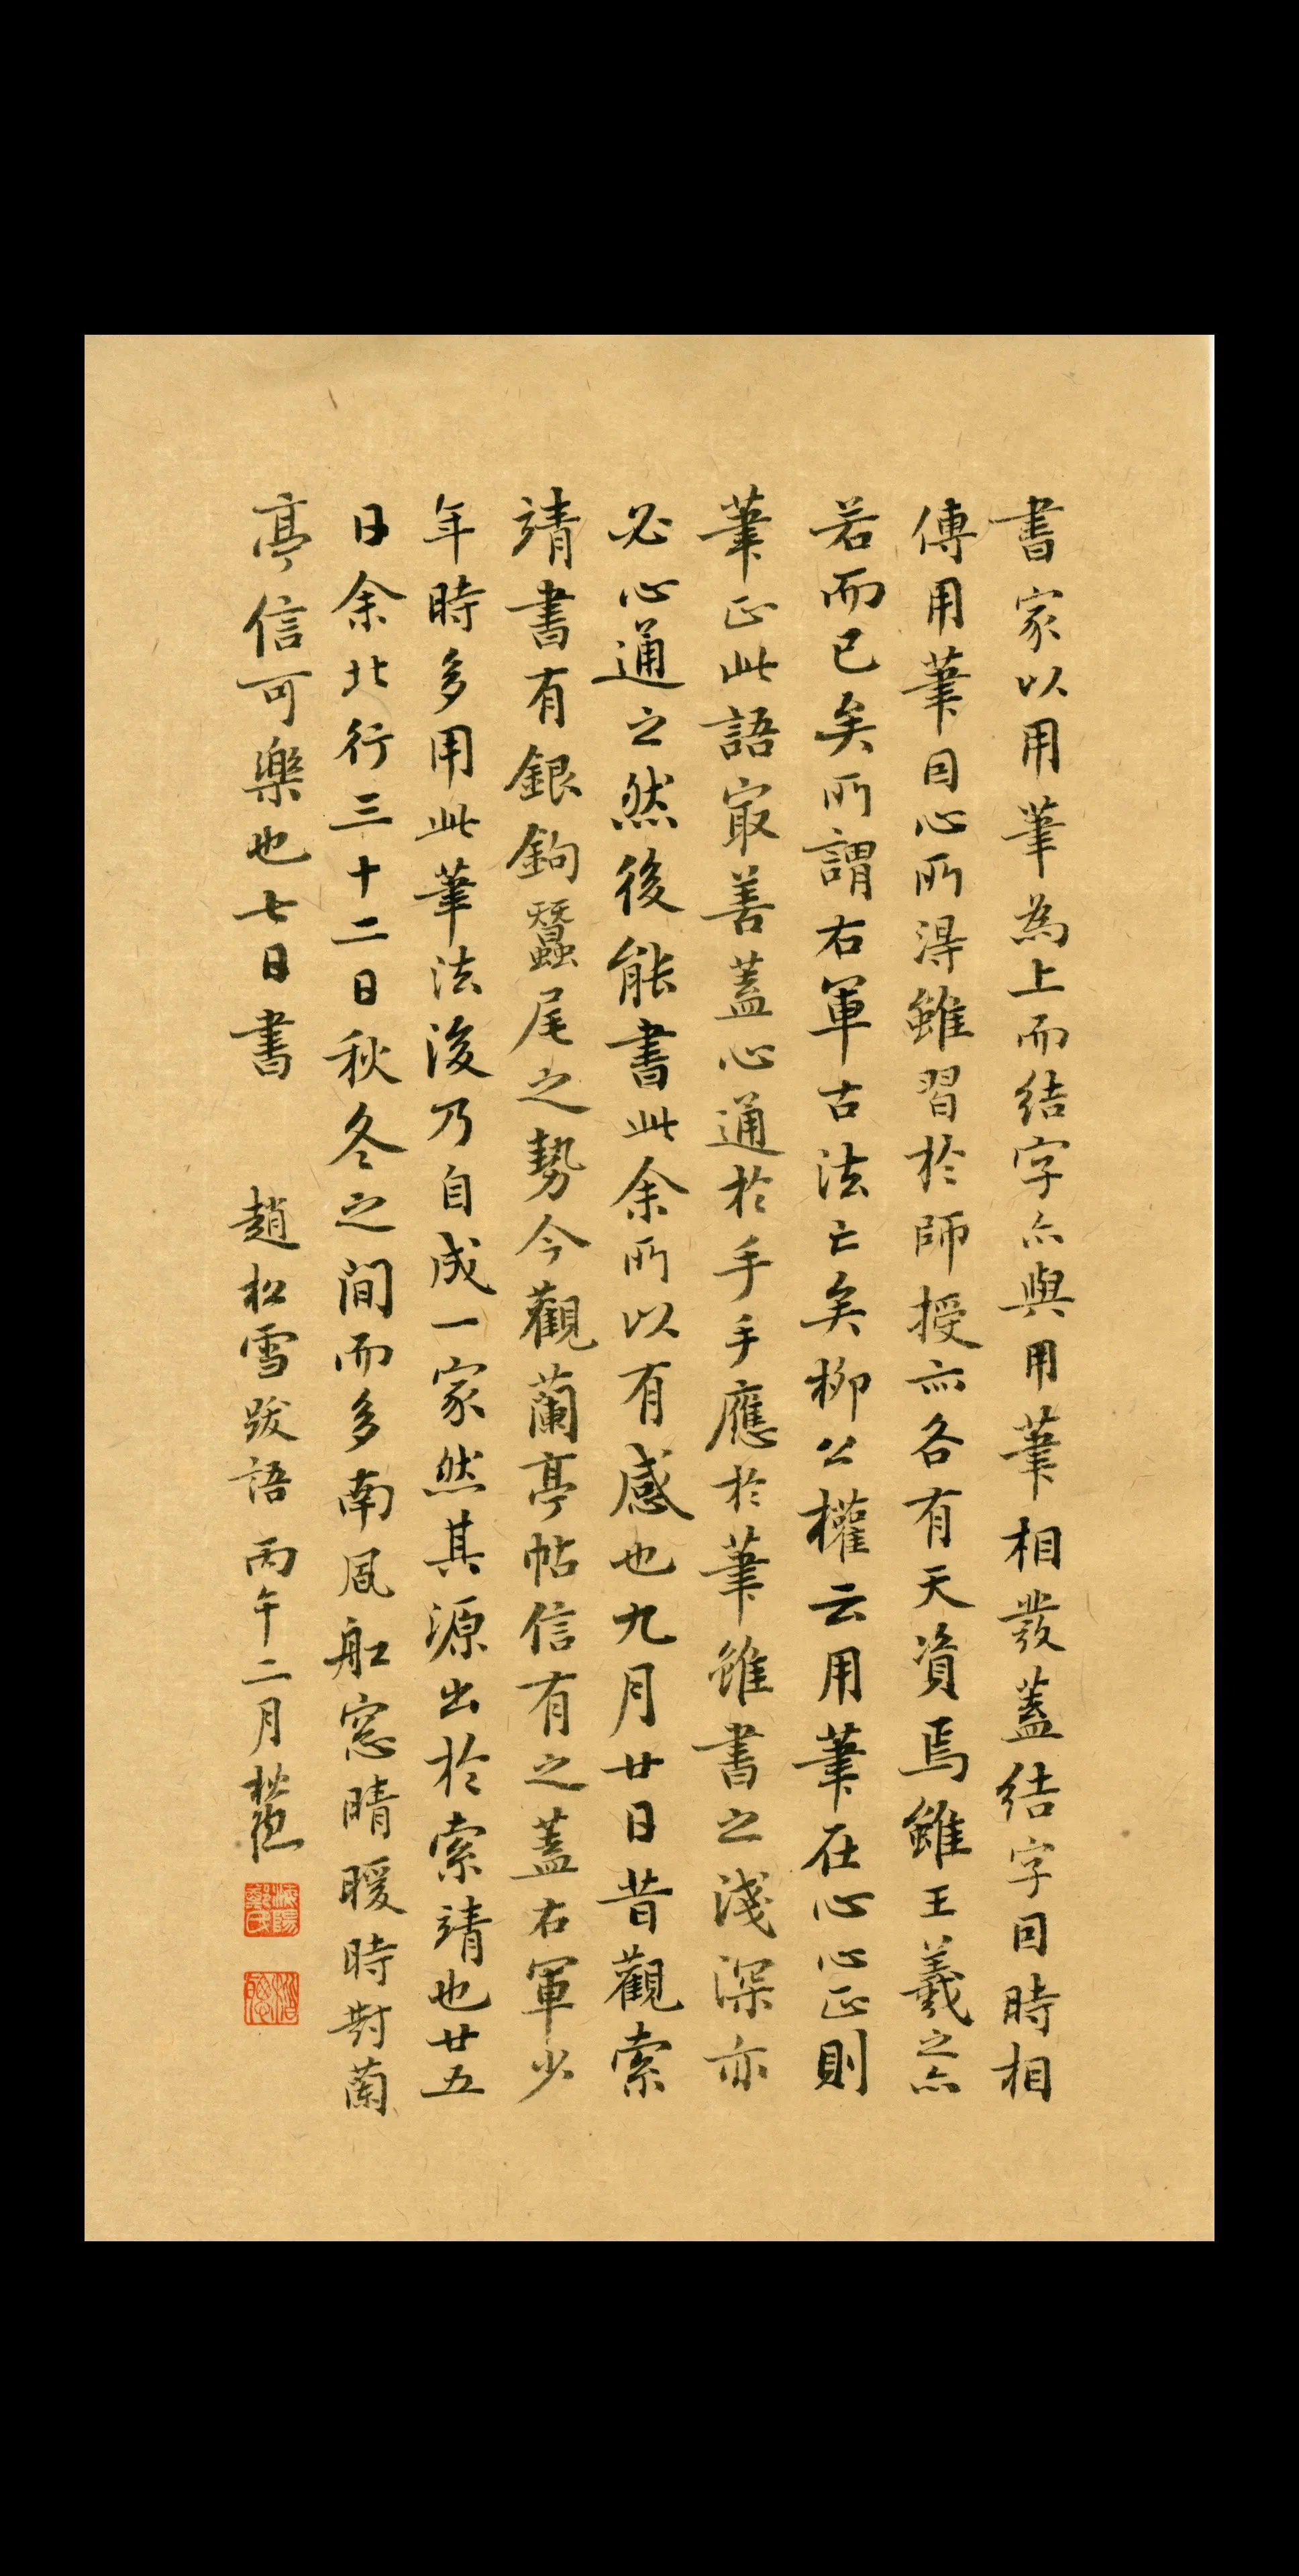 書家以用筆為上而結字亦與用筆相發蓋結字因時相
傳用筆因心所得雖習於師授亦各有天資焉雖王羲之亦
若而已矣所謂右軍古法亡矣柳公權云用筆在心心正則
筆正此語㝡善蓋心通於手手應於筆雖書之淺深亦
必心通之然後能書此余所以有感也九月廿日昔觀索
靖書有銀鉤蠶尾之勢今觀蘭亭帖信有之蓋右軍少
年時多用此筆法後乃自成一家然其源出於索靖也廿五
日余北行三十二日秋冬之間而多南風舩窓晴暖時對蘭
亭信可樂也七日書 趙松雪跋語 丙午二月